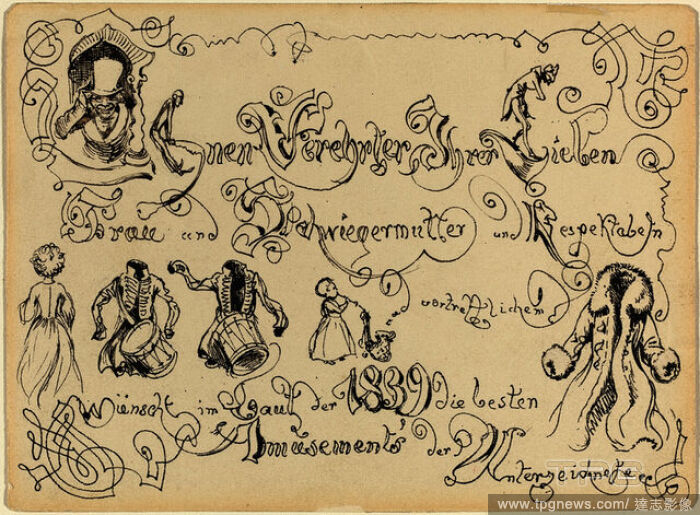 Ihnen Verehrter, Ihrer Lieben
Frau und Schwiegermutter und Respektabeln
vortrefflichem
Wünscht im Lauf der 1839 die besten
Amusements der Unterzeichnete
www.tpgnews.com / 達志影像